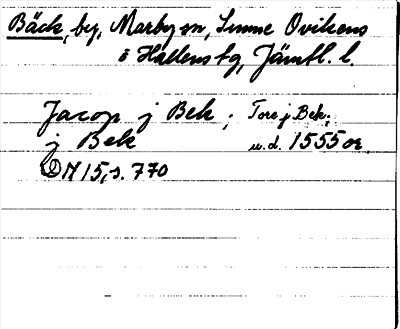 Bäck, by, Marby sn, Sunne Ovikens
o Hallens tg, Jämtl. l.
Jacop j Bek ; Tore j Bek;
j Bek u.d. 1555 or.
DN 15, s. 770